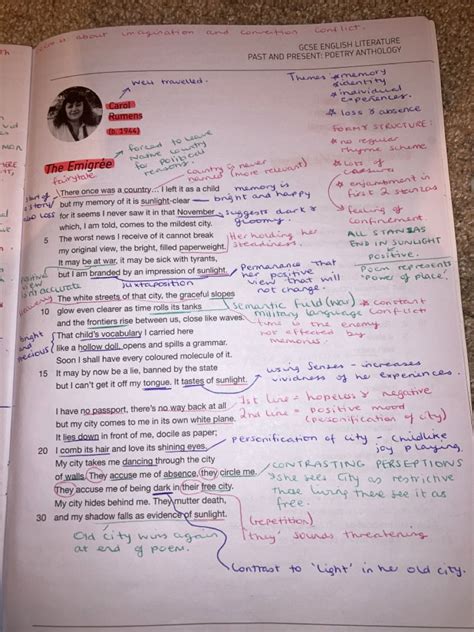 is about imagination and convention conflict.
GCSE ENGLISH LITERATURE
PAST AND PRESENT: POETRY ANTHOLOGY
Well travelled.
Carol
Rumens
(b. 1944)
Themes * memory
* identity
* individual
experiences.
* loss & absence
FORM & STRUCTURE:
* no regular
rhyme scheme
* Loss of
* enjambment in
first 2 stanzas
* feeling of
confinement.
ALL STANZAS
END IN SUNLIGHT
positive.
Poem represents
'Power of place'.
Forced to leave
Native country
for Political
reasons?
The Emigrée
fairytale
Country is never
named (more relevant)
start of
a story
also loss
There once was a country… I left it as a child
but my memory of it is sunlight-clear
memory is
bright and happy
for it seems I never saw it in that November
suggests dark &
gloomy.
which, I am told, comes to the mildest city.
5 The worst news I receive of it cannot break
Her holding her
steadiness.
my original view, the bright, filled paperweight.
It may be at war, it may be sick with tyrants,
but I am branded by an impression of sunlight.
Permanence That
her positive
view that will
not change.
Positive
view
inaccurate
juxtaposition
The white streets of that city, the graceful slopes
10 glow even clearer as time rolls its tanks
semantic field (war)
military language
* Constant
Conflict
and the frontiers rise between us, close like waves.
time is the enemy
not affected by
memories.
That child's vocabulary I carried here
bright
and
precious
like a hollow doll, opens and spills a grammar.
Soon I shall have every coloured molecule of it.
15 It may by now be a lie, banned by the state
but I can't get it off my tongue. It tastes of sunlight.
using senses - increases
vividness of her experiences.
I have no passport, there's no way back at all
1st line = hopeless & negative
but my city comes to me in its own white plane.
2nd line = positive mood
(personification of city)
It lies down in front of me, docile as paper;
20 I comb its hair and love its shining eyes.
personification of city - childlike
joy playing
My city takes me dancing through the city
of walls. They accuse me of absence, they circle me.
CONTRASTING PERSEPTIONS
They accuse me of being dark in their free city.
she sees city as restrictive
those living there see it as
free.
My city hides behind me. They mutter death,
30 and my shadow falls as evidence of sunlight.
(repetition)
'they' sounds threatening
Old city wins again
at end of poem.
Contrast to 'light' in her old city.